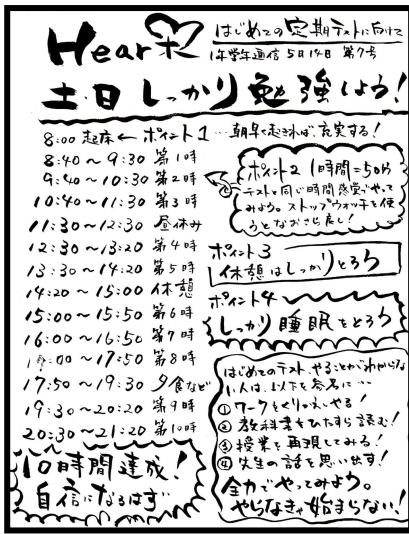 Heart
はじめての定期テストに向けて
1年学年通信 5月14日 第7号
土・日 しっかり勉強しよう!
8:00 起床 ← ポイント1…朝早く起きれば、充実する!
8:40〜9:30 第1時
9:40〜10:30 第2時
10:40〜11:30 第3時
11:30〜12:30 昼休み
12:30〜13:20 第4時
13:30〜14:20 第5時
14:20〜15:00 休憩
15:00〜15:50 第6時
16:00〜16:50 第7時
:00〜17:50 第8時
17:50〜19:30 夕食など
19:30〜20:20 第9時
20:30〜21:20 第10時
10時間達成!
自信になるはず
ポイント2 1時間=50分
テストと同じ時間感覚でやって
みよう。ストップウォッチを使
うとなおさら良し!
ポイント3
休憩はしっかりとろう
ポイント4
しっかり睡眠をとろう
はじめてのテスト、やることがわからな
い人は、以下を参考に…
① ワークをくりかえしやる!
② 教科書をひたすら読む!
③ 授業を再現してみる!
④ 先生の話を思い出す!
全力でやってみよう。
やらなきゃ始まらない!